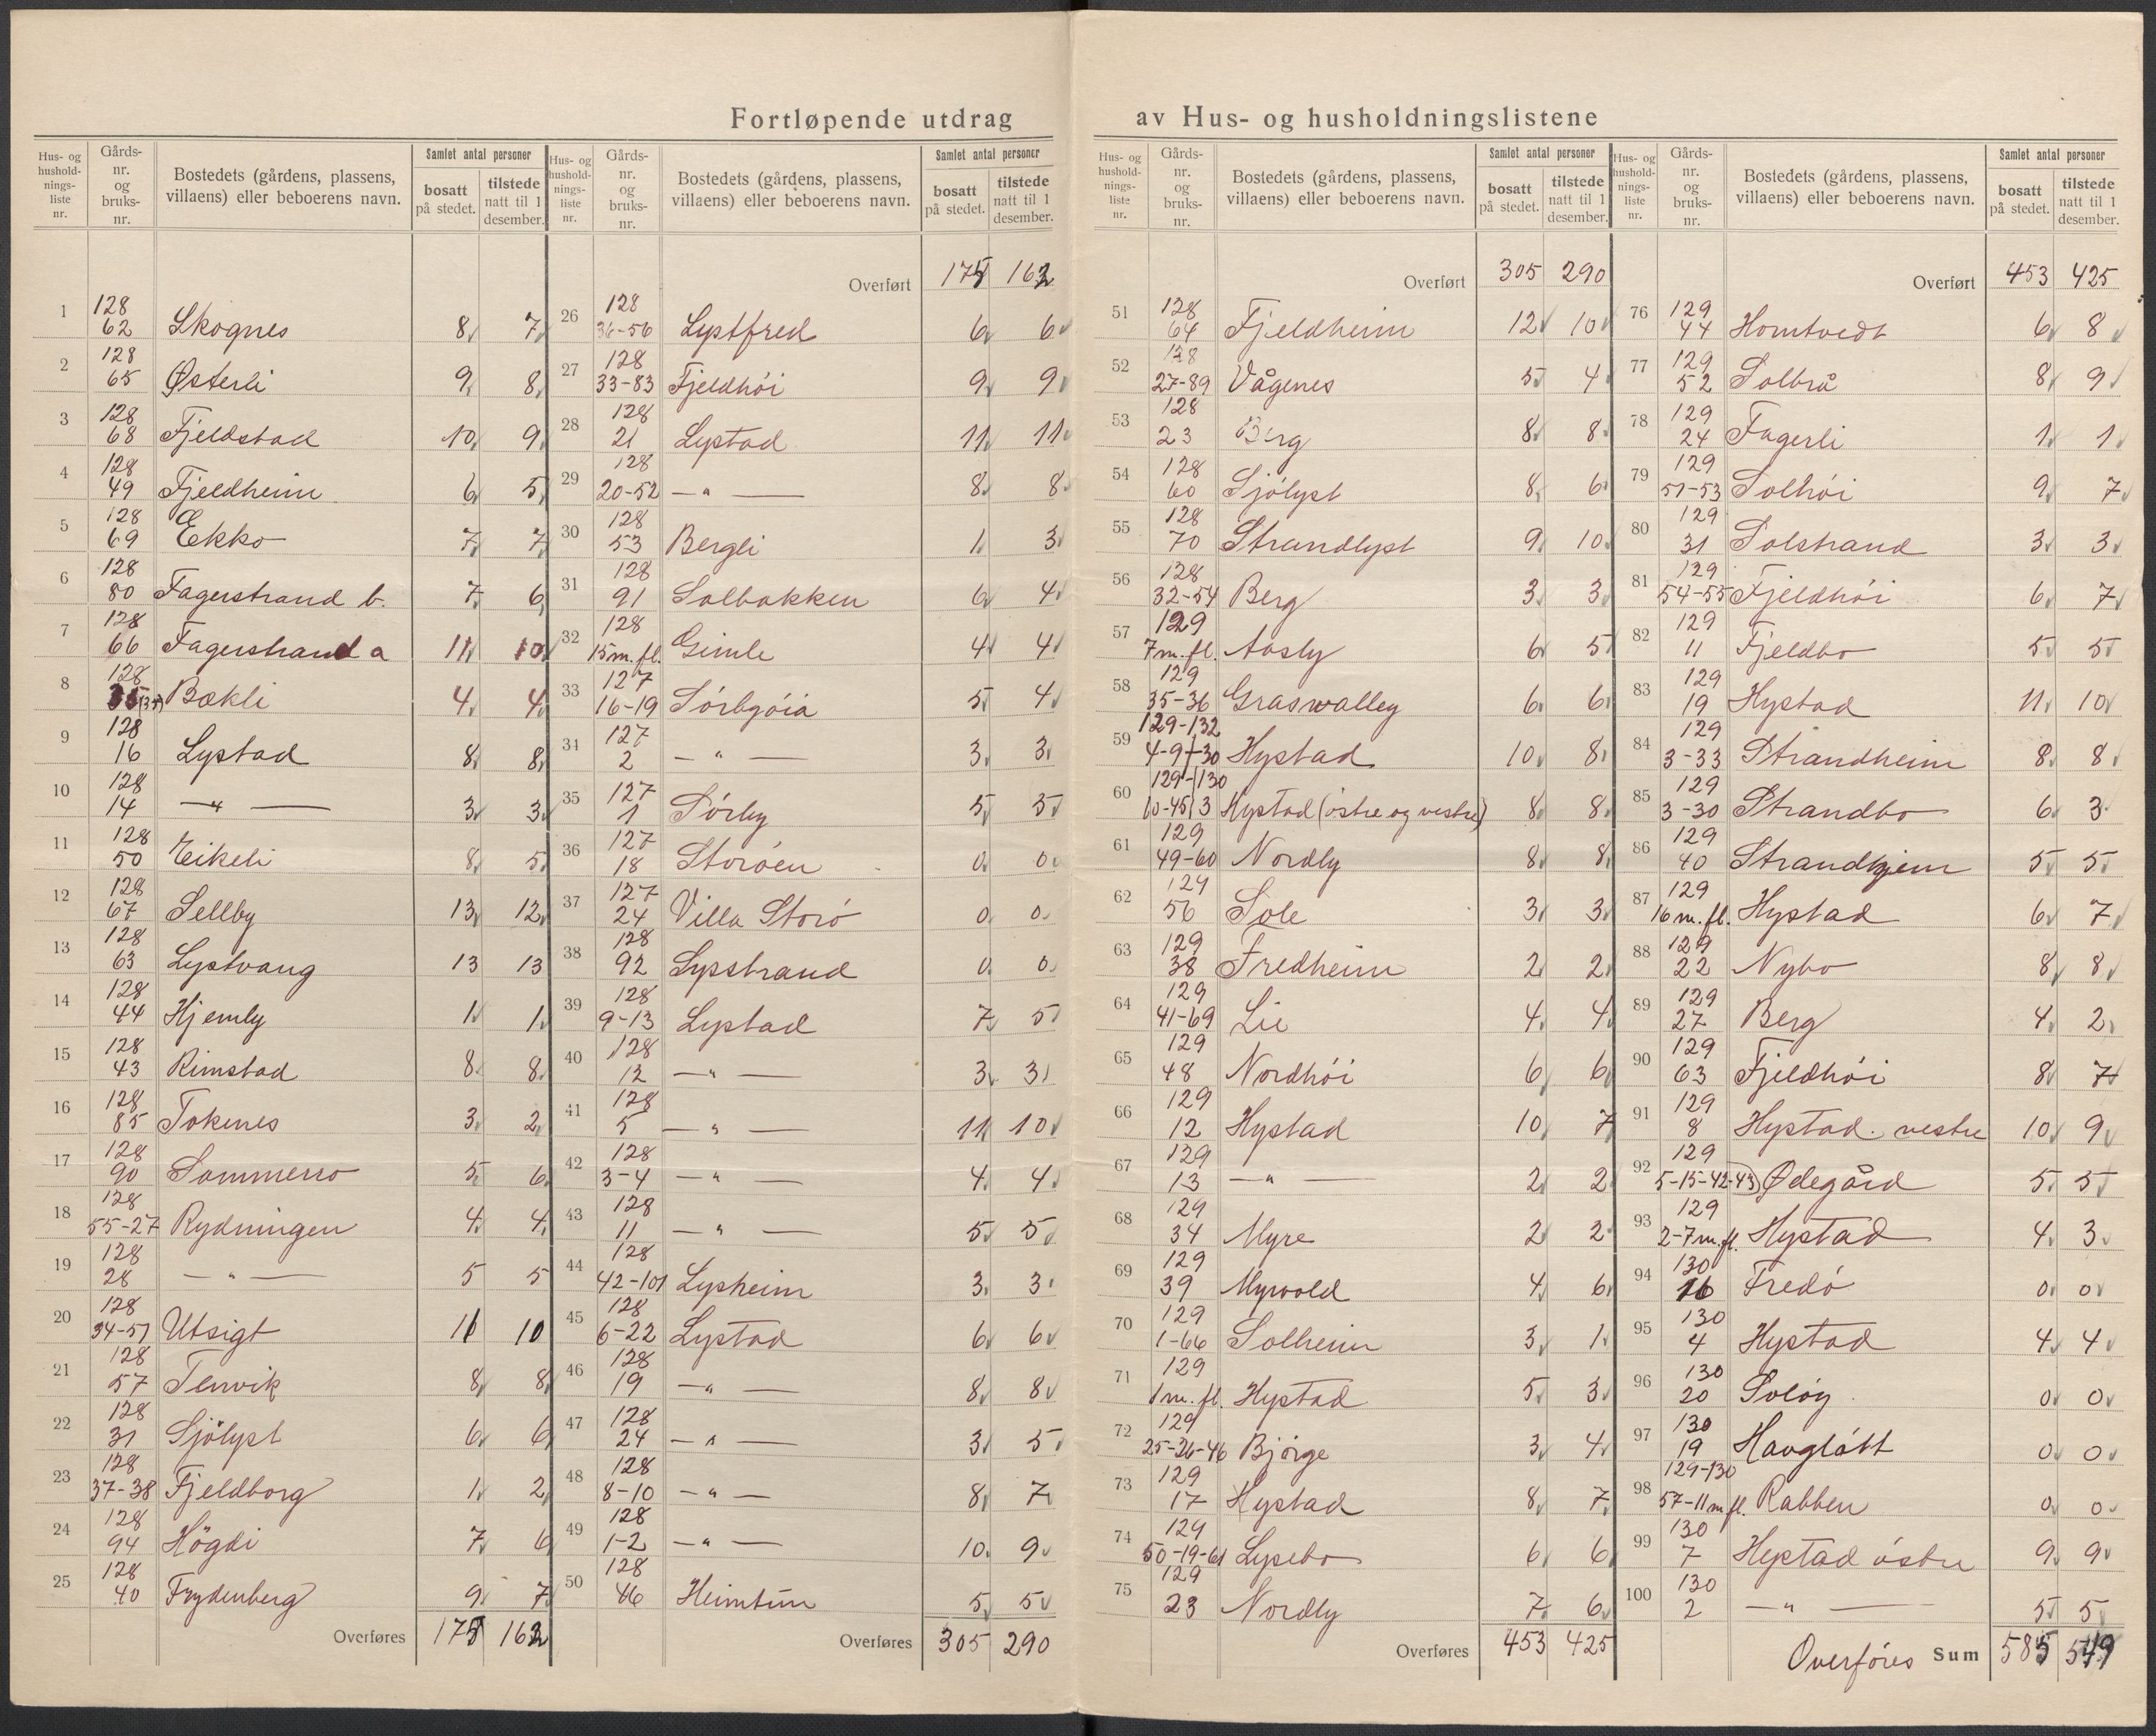 Fortløpende utdrag av Hus- og husholdningslistene
Hus- og husholdnings- liste nr. | Gårds- nr. og bruks- nr. | Bostedets (gårdens, plassens, villaens) eller beboerens navn. | Samlet antal personer | bosatt på stedet. | tilstede natt til 1 desember.
1 128 62 Skognes 8 7
2 128 65 Østerli 9 8
3 128 68 Fjeldstad 10 9
4 128 49 Fjeldheim 6 5
5 128 69 Ekko 7 7
6 128 80 Fagerstrand b. 7 6
7 128 66 Fagerstrand a 11 10
8 128 Bækli 4 4
9 128 16 Lystad 8 8
10 128 14 — " — 3 3
11 128 50 Eikeli 8 5
12 128 67 Sellby 13 12
13 128 63 Lystvang 13 13
14 128 44 Hjemly 1 1
15 128 43 Rimstad 8 8
16 128 85 Tokenes 3 2
17 128 90 Sommerro 5 6
18 128 55-27 Rydningen 4 4
19 128 28 — " — 5 5
20 128 34-51 Utsigt 11 10
21 128 57 Tenvik 8 8
22 128 31 Sjölyst 6 6
23 128 37-38 Fjeldborg 1 2
24 128 94 Högdi 7 6
25 128 40 Frydenberg 9 7
Overføres 175 162
Hus- og husholdnings- liste nr. | Gårds- nr. og bruks- nr. | Bostedets (gårdens, plassens, villaens) eller beboerens navn. | Samlet antal personer | bosatt på stedet. | tilstede natt til 1 desember.
Overført 175 162
26 128 36-56 Lystfred 6 6
27 128 33-83 Fjeldhöi 9 9
28 128 21 Lystad 11 11
29 128 20-52 — " — 8 8
30 128 53 Bergli 1 3
31 128 91 Solbakken 6 4
32 128 15 m. fl. Gimle 4 4
33 127 16-19 Sörbyöia 5 4
34 127 2 — " — 3 3
35 127 1 Sörby 5 5
36 127 18 Storöen 0 0
37 127 24 Villa Storö 0 0
38 128 92 Lysstrand 0 0
39 128 9-13 Lystad 7 5
40 128 12 — " — 3 3
41 128 5 — " — 11 10
42 128 3-4 — " — 4 4
43 128 11 — " — 5 5
44 128 42-101 Lysheim 3 3
45 128 6-22 Lystad 6 6
46 128 19 — " — 8 8
47 128 24 — " — 3 5
48 128 8-10 — " — 8 7
49 128 1-2 — " — 10 9
50 128 46 Heimtun 5 5
Overføres 305 290
Hus- og husholdnings- liste nr. | Gårds- nr. og bruks- nr. | Bostedets (gårdens, plassens, villaens) eller beboerens navn. | Samlet antal personer | bosatt på stedet. | tilstede natt til 1 desember.
Overført 305 290
51 128 64 Fjeldheim 12 10
52 128 27-89 Vågenes 5 4
53 128 23 Berg 8 8
54 128 60 Sjölyst 8 6
55 128 70 Strandlyst 9 10
56 128 32-54 Berg 3 3
57 129 7 m. fl. Aasly 6 5
58 129 35-36 Graswalley 6 6
59 129-132 4-9+30 Hystad 10 8
60 129-130 10-45 | 3 Hystad (östre og vestre) 8 8
61 129 49-60 Nordly 8 8
62 129 56 Sole 3 3
63 129 38 Fredheim 2 2
64 129 41-69 Lie 4 4
65 129 48 Nordhöi 6 6
66 129 12 Hystad 10 7
67 129 13 — " — 2 2
68 129 34 Myre 2 2
69 129 39 Myrvold 4 6
70 129 1-66 Solheim 3 1
71 129 1 m. fl. Hystad 5 3
72 129 25-26-46 Bjørge 3 4
73 129 17 Hystad 8 7
74 129 50-19-61 Lysebo 6 6
75 129 23 Nordly 7 6
Overføres 453 425
Hus- og husholdnings- liste nr. | Gårds- nr. og bruks- nr. | Bostedets (gårdens, plassens, villaens) eller beboerens navn. | Samlet antal personer | bosatt på stedet. | tilstede natt til 1 desember.
Overført 453 425
76 129 44 Homtvedt 6 8
77 129 52 Solbrå 8 9
78 129 24 Fagerli 1 1
79 129 51-53 Solhöi 9 7
80 129 31 Solstrand 3 3
81 129 54-55 Fjeldhöi 6 7
82 129 11 Fjeldbo 5 5
83 129 19 Hystad 11 10
84 129 3-33 Strandheim 8 8
85 129 3-30 Strandbo 6 3
86 129 40 Strandhjem 5 5
87 129 16 m. fl. Hystad 6 7
88 129 22 Nybo 8 8
89 129 27 Berg 4 2
90 129 63 Fjeldhöi 8 7
91 129 8 Hystad vestre 10 9
92 129 5-15-42-43 Ødegård 5 5
93 129 2-7 m. fl. Hystad 4 3
94 130 16 Fredö 0 0
95 130 4 Hystad 4 4
96 130 20 Soløy 0 0
97 130 19 Havglött 0 0
98 129-130 57-11 m fl. Rabben 0 0
99 130 7 Hystad östre 9 9
100 130 2 — " — 5 5
Overføres Sum 585 549